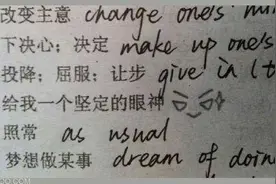 改变主意 change one's
下决心；决定 make up one's
投降；屈服；让步 give in (t
给我一个坚定的眼神
照常 as usual
梦想做某事 dream of doin